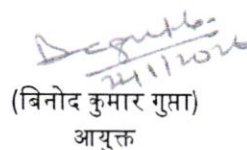 24/1/2026
(बिनोद कुमार गुप्ता)
आयुक्त